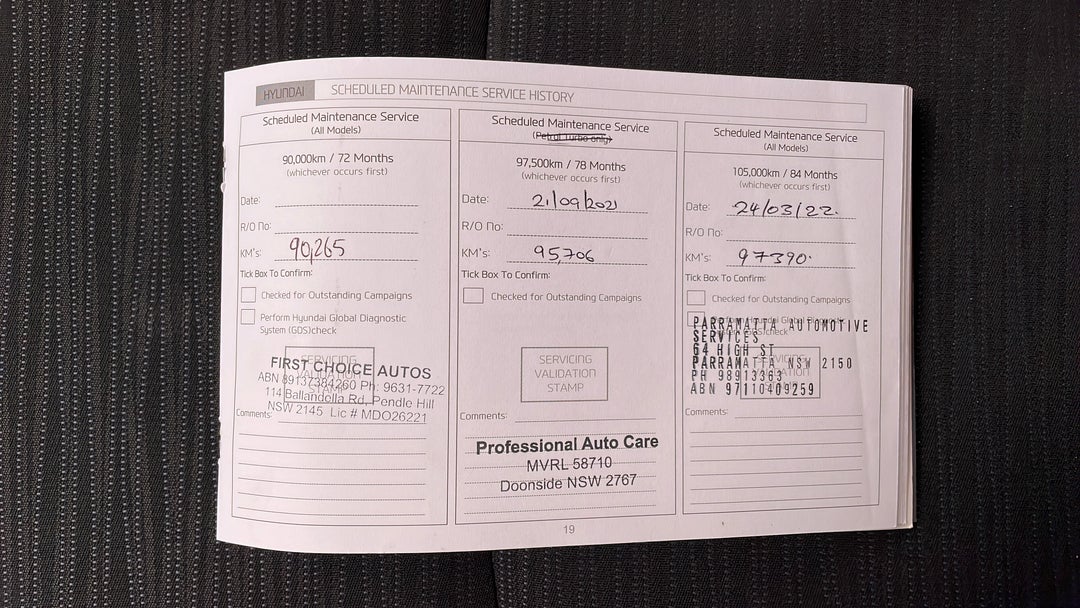 HYUNDAI SCHEDULED MAINTENANCE SERVICE HISTORY
Scheduled Maintenance Service
(All Models)
90,000km / 72 Months
(whichever occurs first)
Date:
R/O No:
KM's: 90,265
Tick Box To Confirm:
Checked for Outstanding Campaigns
Perform Hyundai Global Diagnostic
System (GDS)check
SERVICING
VALIDATION
STAMP
FIRST CHOICE AUTOS
ABN 89137384260 Ph: 9631-7722
114 Ballandella Rd, Pendle Hill
NSW 2145 Lic # MDO26221
Comments:
Scheduled Maintenance Service
(Petrol Turbo only)
97,500km / 78 Months
(whichever occurs first)
Date: 21/09/2021
R/O No:
KM's: 95,706
Tick Box To Confirm:
Checked for Outstanding Campaigns
SERVICING
VALIDATION
STAMP
Comments:
Professional Auto Care
MVRL 58710
Doonside NSW 2767
Scheduled Maintenance Service
(All Models)
105,000km / 84 Months
(whichever occurs first)
Date: 24/03/22.
R/O No:
KM's: 97390.
Tick Box To Confirm:
Checked for Outstanding Campaigns
Perform Hyundai Global Diagnostic
System (GDS)check
PARRAMATTA AUTOMOTIVE
SERVICES
64 HIGH ST
PARRAMATTA NSW 2150
PH 98913363
ABN 97110409259
SERVICING
VALIDATION
STAMP
Comments:
19